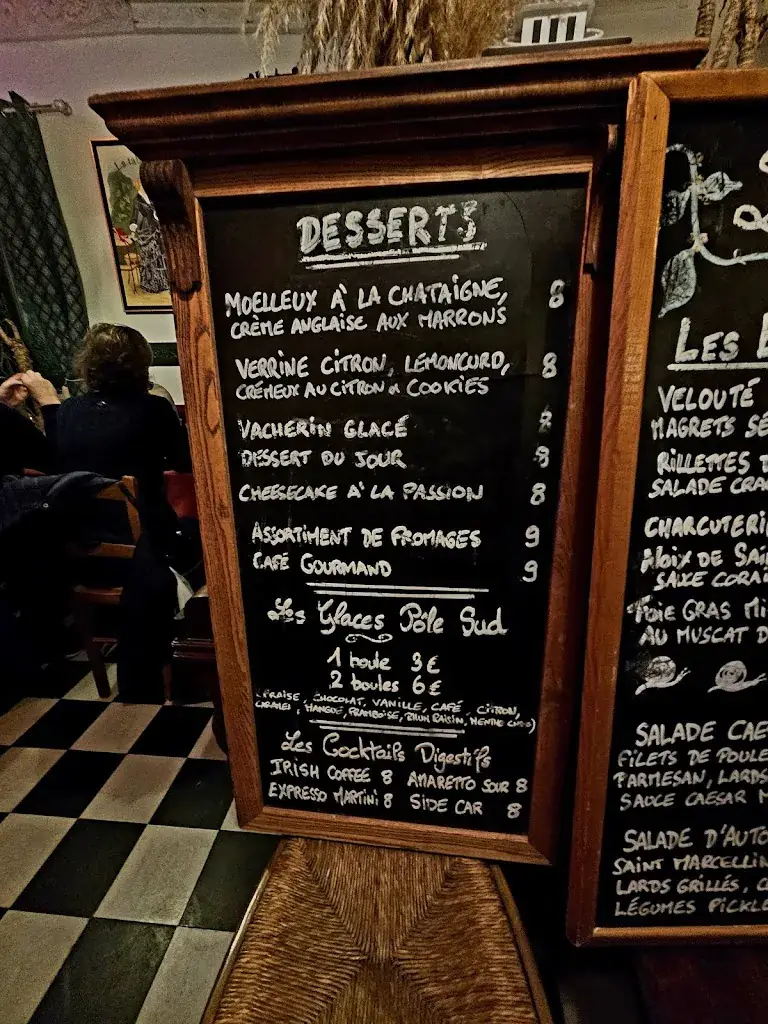 DESSERTS
MOELLEUX À LA CHATAIGNE, 8
CRÈME ANGLAISE AUX MARRONS
VERRINE CITRON, LEMONCURD, 8
CRÉMEUX AU CITRON & COOKIES
VACHERIN GLACÉ 8
DESSERT DU JOUR 8
CHEESECAKE À LA PASSION 8
ASSORTIMENT DE FROMAGES 9
CAFÉ GOURMAND 9
Les Glaces Pôle Sud
1 boule 3€
2 boules 6€
(FRAISE, CHOCOLAT, VANILLE, CAFÉ, CITRON,
CARAMEL, MANGUE, FRAMBOISE, RHUM RAISIN, MENTHE CHOC)
Les Cocktails Digestifs
IRISH COFFEE 8 AMARETTO SOUR 8
EXPRESSO MARTINI 8 SIDE CAR 8
LES
VELOUTÉ
MAGRETS SÉ
RILLETTES D
SALADE CRA
CHARCUTERI
NOIX DE SAI
SAUCE CORAI
FOIE GRAS MI
AU MUSCAT D
SALADE CAE
FILETS DE POULE
PARMESAN, LARDS
SAUCE CAESAR M
SALADE D'AUTO
SAINT MARCELLIN
LARDS GRILLÉS, C
LÉGUMES PICKLE